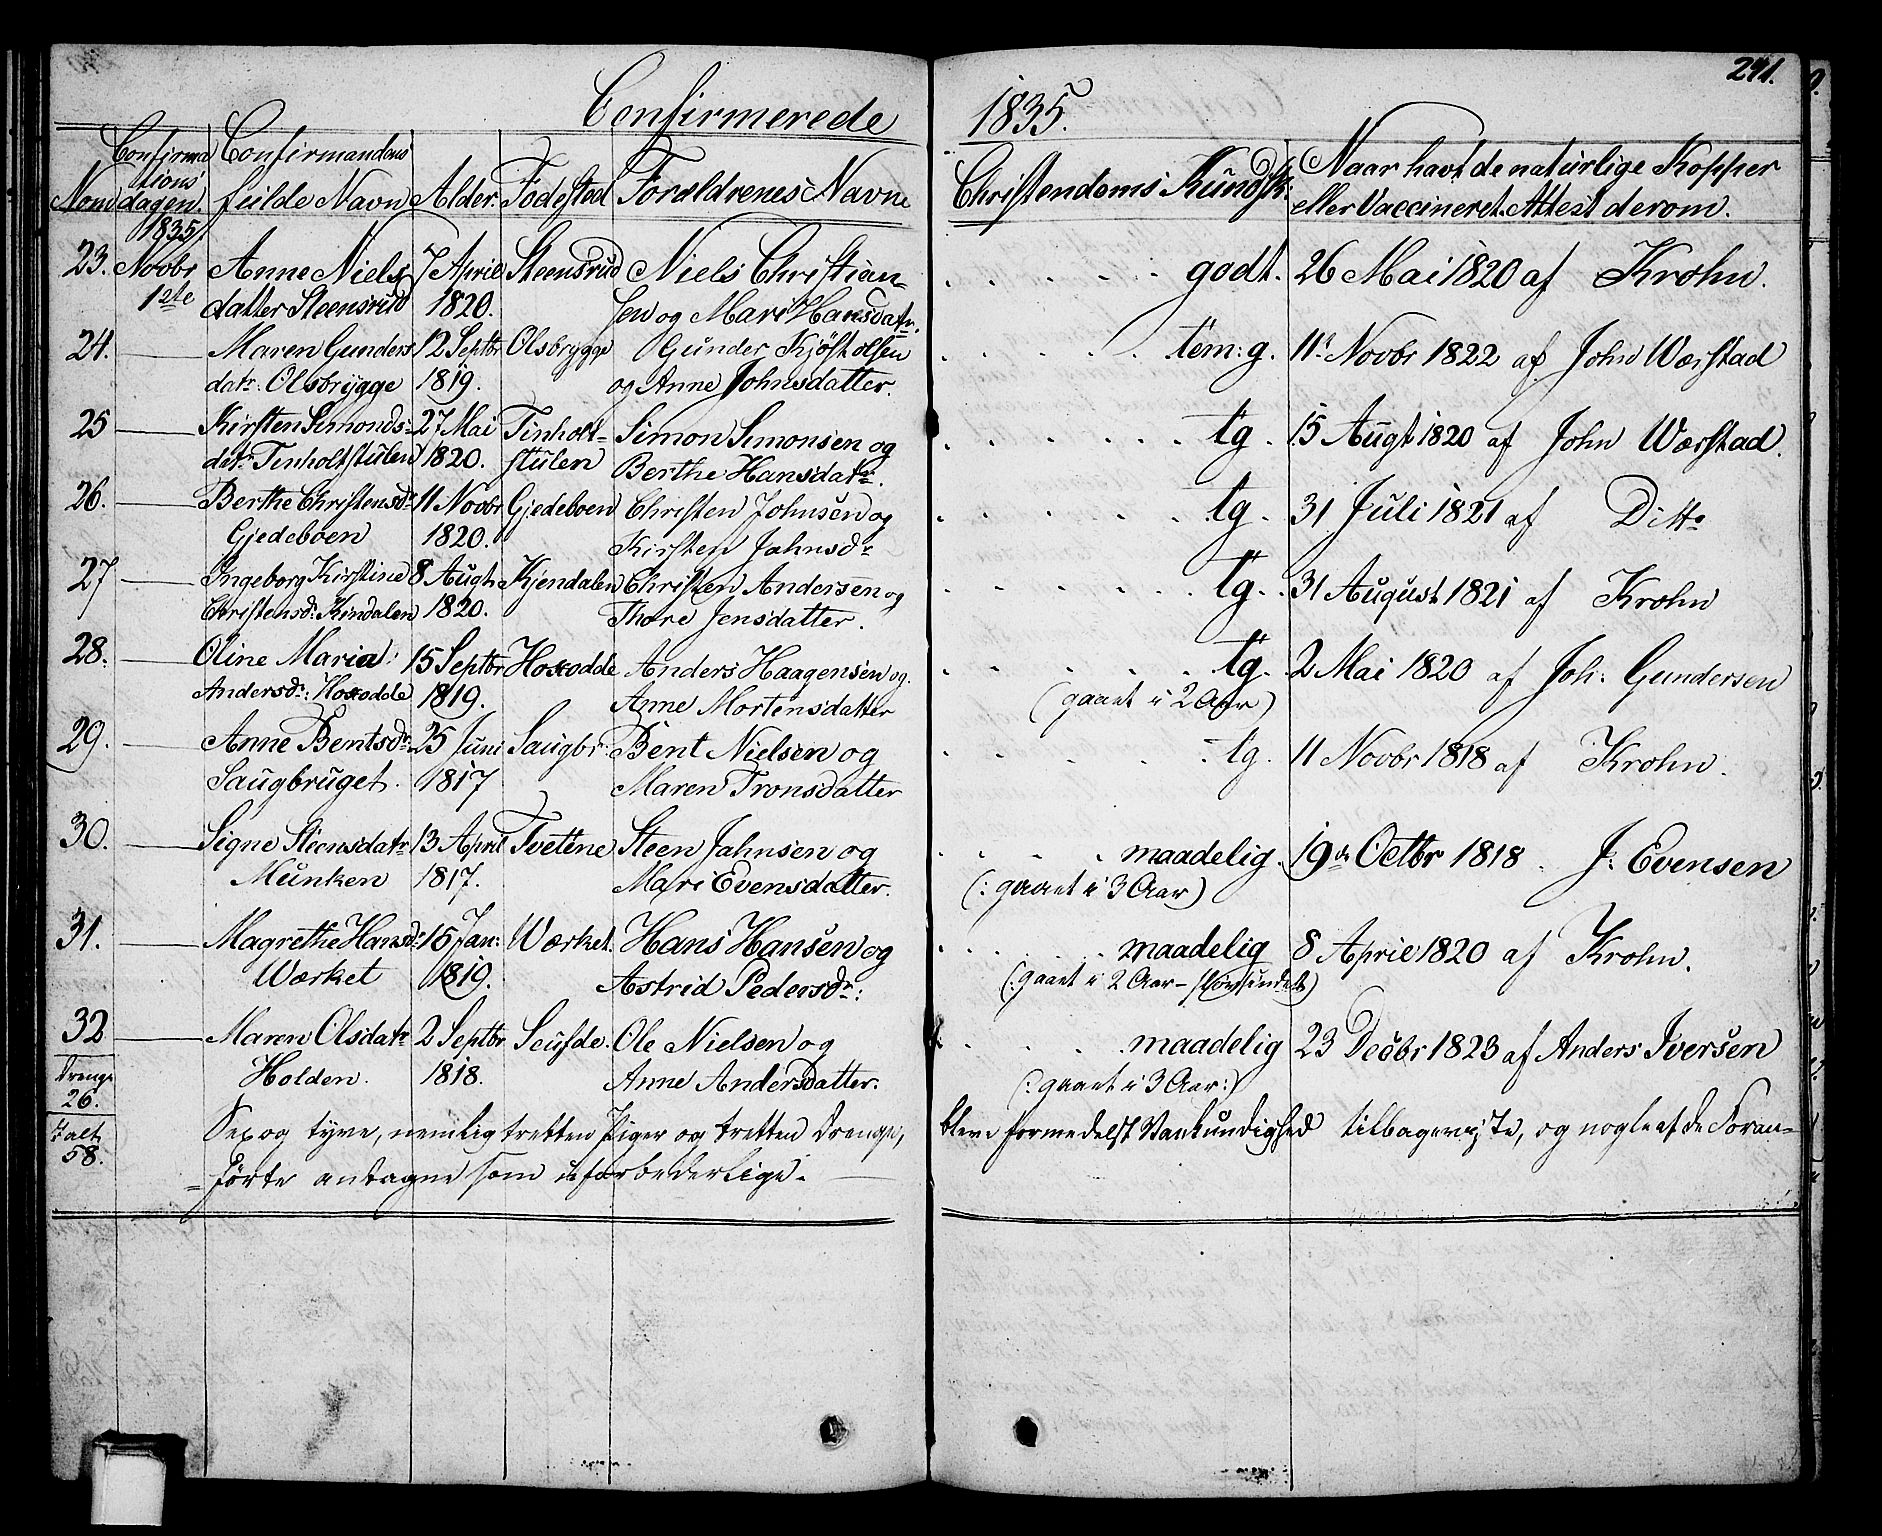 241.
Confirmerede 1835.
Confirma
tions
Num dagen. Confirmandens
fulde Navn Alder. Fødested Forældrenes Navne Christendoms Kundsk: Naar havt de naturlige Kopper
eller Vaccineret. Attest derom.
1835
23. Novbr Anne Niels 7 April Steensrud Niels Christian- godt. 26 Mai 1820 af Krohn.
1ste datter Steensrud 1820. sen og Mari Hansdatr.
24. Maren Gunders 12 Septbr Olsbrygge Gunder Kjøstolsen tem: g. 11 Novbr 1822 af John Wærstad
datr: Olsbrygge 1819. og Anne Johnsdatter.
25 Kirsten Simonds- 27 Mai Tinholt- Simon Simonsen og tg. 15 Augst 1820 af John Wærstad.
datr Tinholtstulen 1820. stulen Berthe Hansdatr.
26. Berthe Christensdr 11 Novbr Gjedeboen Christen Johnsen og tg. 31 Juli 1821 af Ditto
Gjedeboen 1820. Kirsten Jahnsdr
27 Ingeborg Kirstine 8 Augt Kjendalen Christen Andersen og tg. 31 August 1821 af Krohn
Christensdr Kindalen 1820. Thore Jensdatter.
28. Oline Maria 15 Septbr Hoxodde Anders Haagensen og tg. 2 Mai 1820 af Joh: Gundersen
Andersdr: Hoxodde 1819. Anne Mortensdatter (gaaet i 2 Aar)
29. Anne Bentsdr 25 Juni Saugbr: Bent Nielsen og tg. 11 Novbr 1818 af Krohn.
Saugbruget. 1817 Maren Tronsdatter
30. Signe Steensdatr 13 April Tvetene Steen Jahnsen og maadelig. 19de Octbr 1818. J: Evensen
Munken 1817. Mari Evensdatter. (: gaaet i 3 Aar)
31. Magrethe Hansdr 15 Jan: Wærket. Hans Hansen og maadelig 8 April 1820 af Krohn.
Wærket 1819. Astrid Pedersdr: (: gaaet i 2 Aar -
32 Maren Olsdatr 2 Septbr Ole Nielsen og maadelig 23 Decbr 1823 af Anders Iversen
Holden. 1818. Anne Andersdatter. (: gaaet i 3 Aar:)
Drenge
26.
I alt
58.
Sex og tyve, nemlig tretten Piger og tretten Drenge, bleve formedelst Vankundighed tilbageviste, og nogle af de Foran-
førte antagne som uforbederlige.